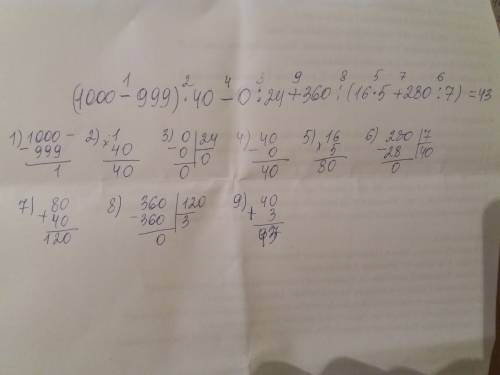 1 2 4 3 9 8 5 7 6
(1000 - 999) · 40 - 0 : 24 + 360 : (16 · 5 + 280 : 7) = 43
1) 1000 - 2) 1 3) 0 | 24 4) 40 5) 16 6) 280 | 7
- 999 × 40 - 0 | 0 - 0 × 5 - 28 | 40
1 40 0 40 80 0
7) 80 8) 360 | 120 9) 40
+ 40 - 360 | 3 + 3
120 0 43